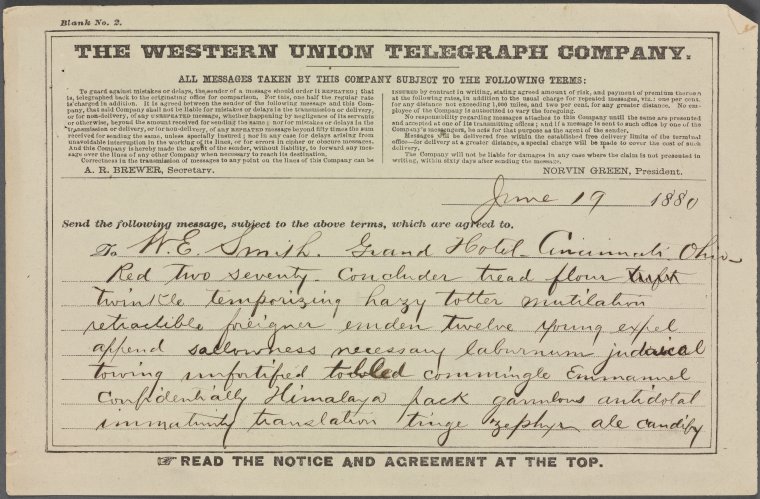 Blank No. 2.
THE WESTERN UNION TELEGRAPH COMPANY.
ALL MESSAGES TAKEN BY THIS COMPANY SUBJECT TO THE FOLLOWING TERMS:
To guard against mistakes or delays, the sender of a message should order it REPEATED; that
is, telegraphed back to the originating office for comparison. For this, one half the regular rate
is charged in addition. It is agreed between the sender of the following message and this Com-
pany, that said Company shall not be liable for mistakes or delays in the transmission or delivery,
or for non-delivery, of any UNREPEATED message, whether happening by negligence of its servants
or otherwise, beyond the amount received for sending the same; nor for mistakes or delays in the
transmission or delivery, or for non-delivery, of any REPEATED message beyond fifty times the sum
received for sending the same, unless specially insured; nor in any case for delays arising from
unavoidable interruption in the working of its lines, or for errors in cipher or obscure messages.
And this Company is hereby made the agent of the sender, without liability, to forward any mes-
sage over the lines of any other Company when necessary to reach its destination.
Correctness in the transmission of messages to any point on the lines of this Company can be
INSURED by contract in writing, stating agreed amount of risk, and payment of premium thereon
at the following rates, in addition to the usual charge for repeated messages, VIZ.: one per cent.
for any distance not exceeding 1,000 miles, and two per cent. for any greater distance. No em-
ployee of the Company is authorized to vary the foregoing.
No responsibility regarding messages attaches to this Company until the same are presented
and accepted at one of its transmitting offices; and if a message is sent to such office by one of the
Company's messengers, he acts for that purpose as the agent of the sender.
Messages will be delivered free within the established free delivery limits of the terminal
office—for delivery at a greater distance, a special charge will be made to cover the cost of such
delivery.
The Company will not be liable for damages in any case where the claim is not presented in
writing, within sixty days after sending the message.
A. R. BREWER, Secretary. NORVIN GREEN, President.
June 19 1880
Send the following message, subject to the above terms, which are agreed to.
To W. E. Smith. Grand Hotel - Cincinnati Ohio -
Red two seventy. Concluder tread flour
twinkle temporizing hazy totter mutilation
retractible foreigner emden twelve young expel
append sallowness necessary laburnum judaical
towing unfortified commingle Emmanuel
Confidentially Himalaya pack garrulous antidotal
immaturity translation tinge zephyr ale candify
☞ READ THE NOTICE AND AGREEMENT AT THE TOP.